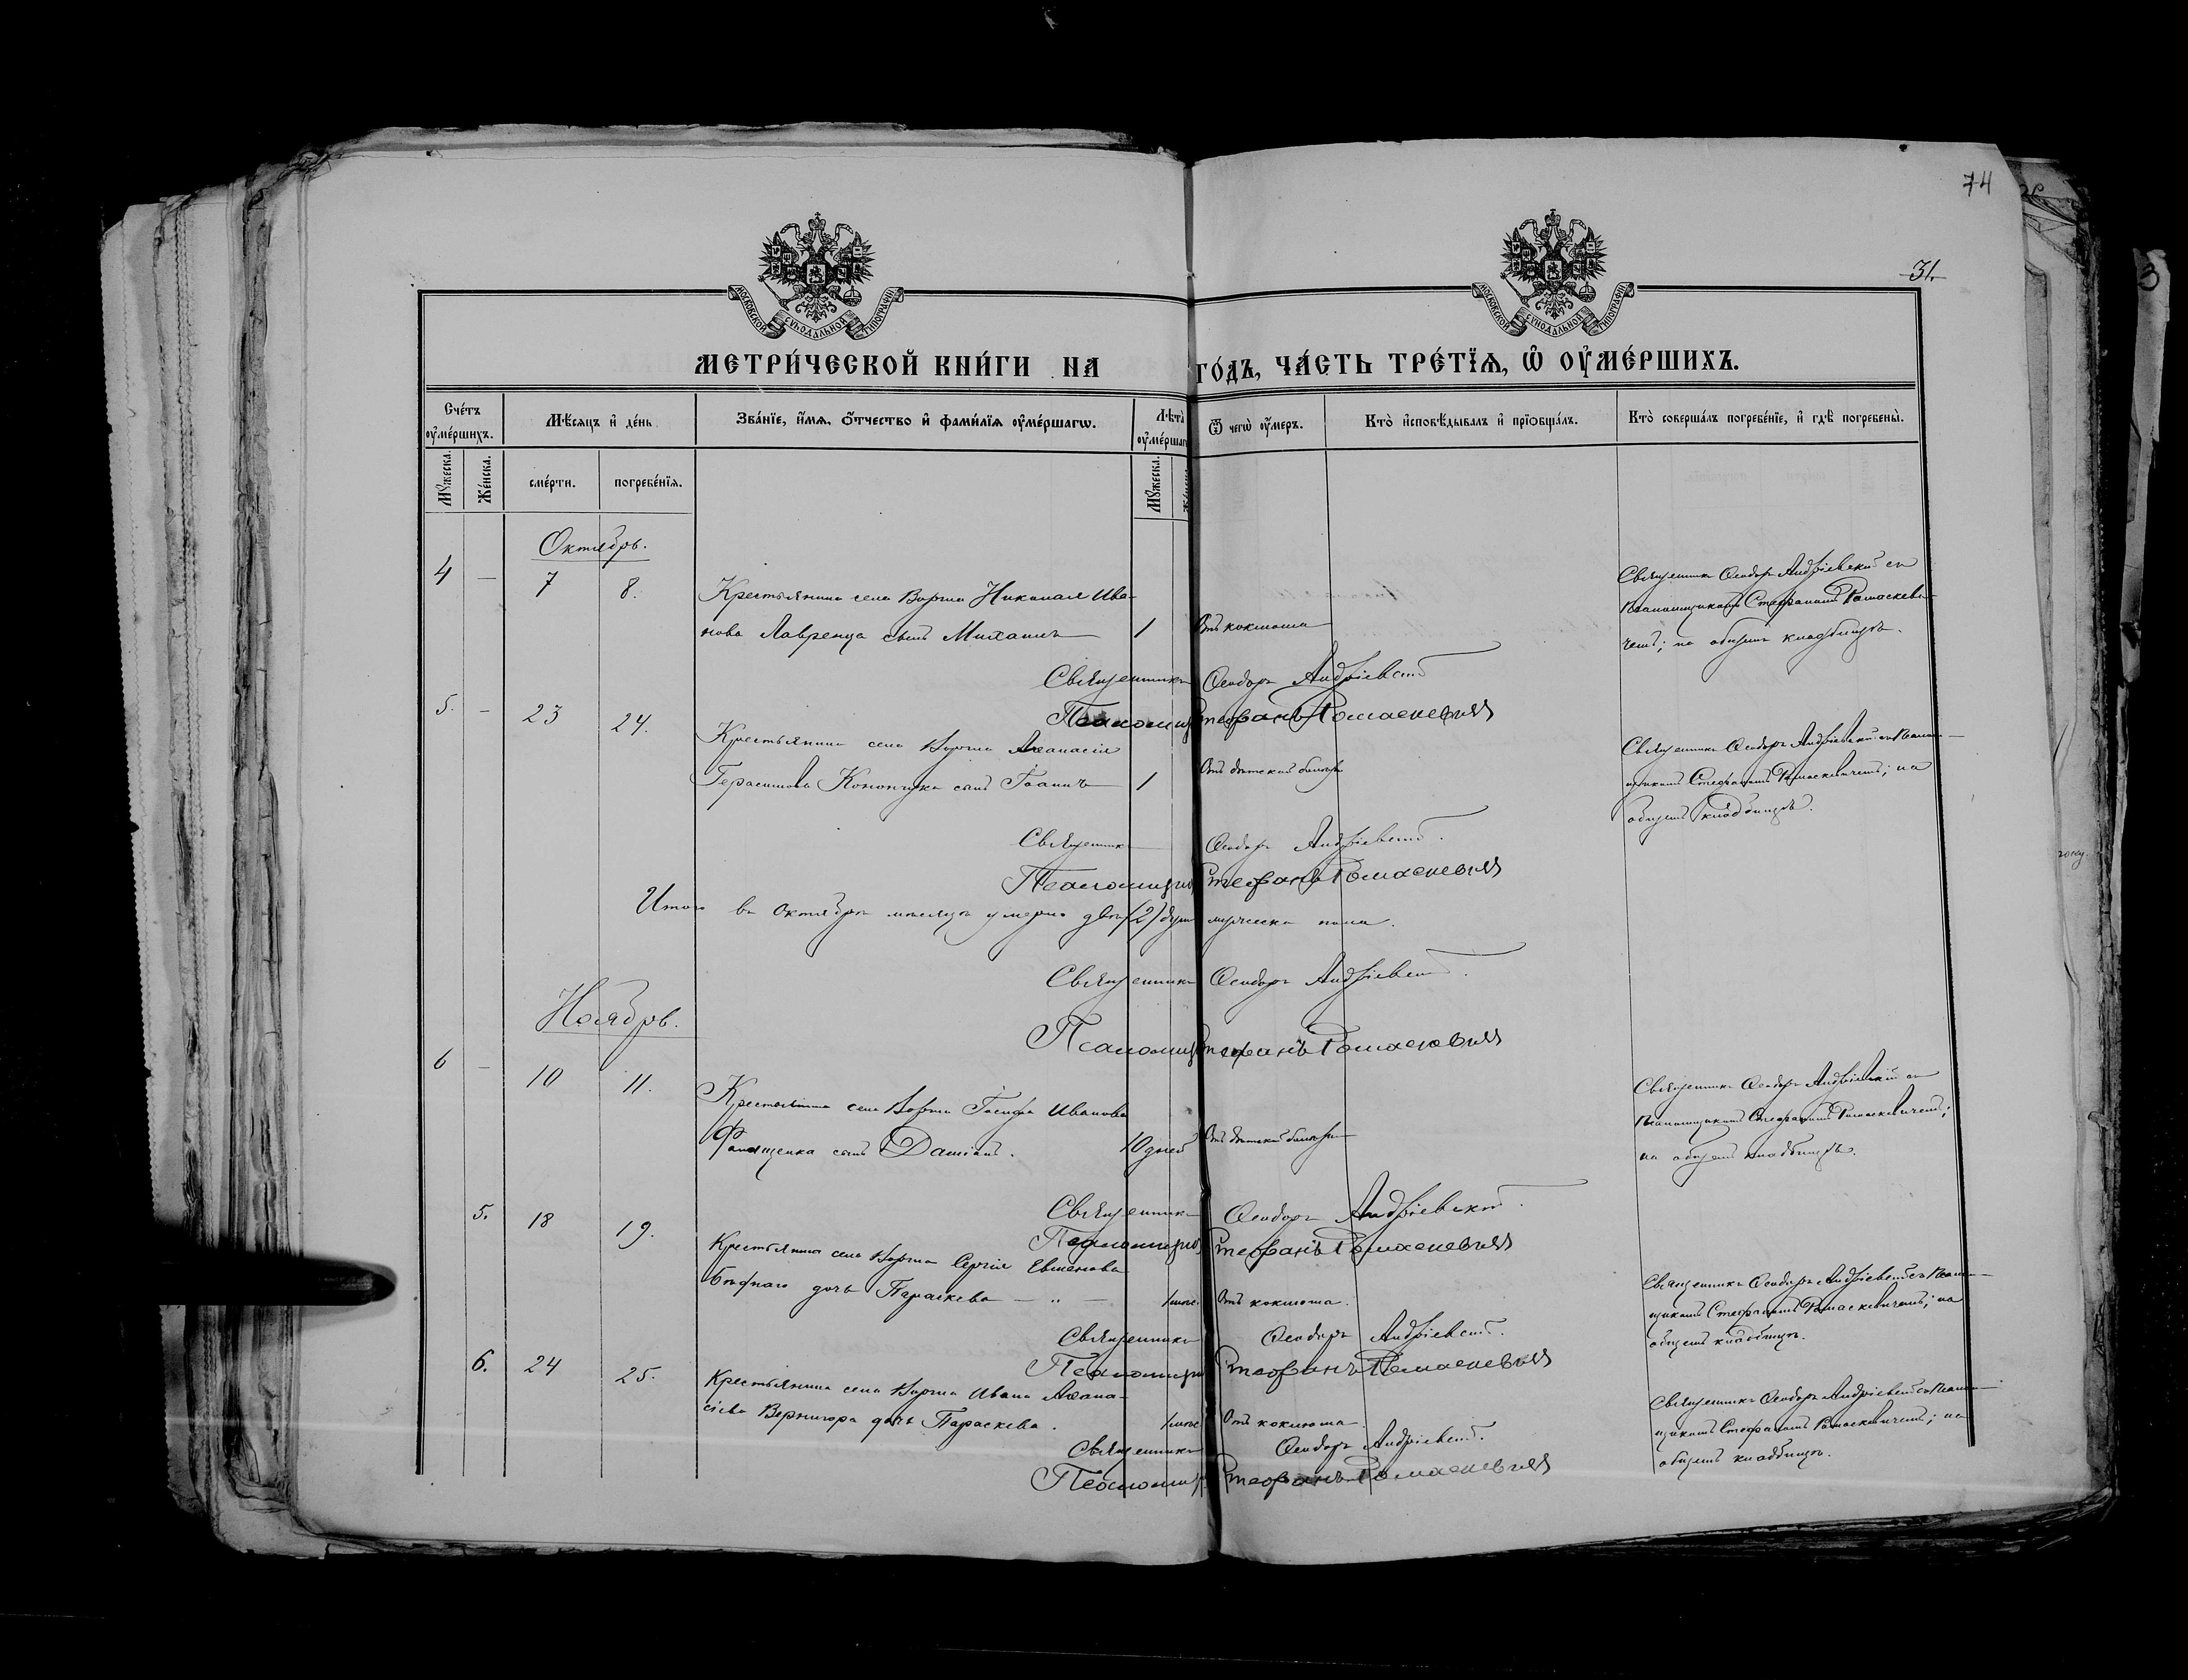 74
31.
МОСКОВСКОЙ СѴНОДАЛЬНОЙ ТИПОГРАФІИ
МОСКОВСКОЙ СѴНОДАЛЬНОЙ ТИПОГРАФІИ
МЕТРИ́ЧЕСКОЙ КНИ́ГИ НА ГО́ДЪ, ЧА́СТЬ ТРЕ́ТЇѦ, Ѡ҆ ОУ҆МЕ́РШИХЪ.
Сче́тъ оу҆ме́ршихъ.
Мѣ́сяцъ и҆ де́нь
Зва́нїе, и҆́мѧ, ѻ҆́тчество и҆ фами́лїѧ оу҆ме́ршагѡ.
Лѣта̀ оу҆ме́ршагѡ
Ѿ чегѡ̀ оу҆́меръ.
Кто̀ и҆сповѣ́дывалъ и҆ прїѡбща́лъ.
Кто̀ соверша́лъ погребе́нїе, и҆ гдѣ̀ погребены̀.
Мꙋ́жеска.
Же́нска.
сме́рти.
погребе́нїѧ.
Мꙋ́жеска.
Октябрь.
4 — 7 8.
Крестьянина села Николая Ива-
нова Лавренца сынъ Михаилъ 1 Отъ коклюша
Священникъ Ѳеодоръ Андріевскій съ
Псаломщикомъ Стефаномъ Ромаскеви-
чемъ; на общемъ кладбищѣ.
Священникъ Ѳеодоръ Андріевскій
Псаломщикъ Стефанъ Ромаскевичъ
5. — 23 24.
Крестьянина села Аѳанасія
Герасимова Кононука сынъ Іоаннъ 1 Отъ дѣтской болѣзни
Священникъ Ѳеодоръ Андріевскій съ Псалом-
щикомъ Стефаномъ Ромаскевичемъ; на
общемъ кладбищѣ.
Священникъ Ѳеодоръ Андріевскій.
Псаломщикъ Стефанъ Ромаскевичъ
Итого въ Октябрѣ мѣсяцѣ умерло двѣ (2) души мужеска пола.
Священникъ Ѳеодоръ Андріевскій.
Псаломщикъ Стефанъ Ромаскевичъ
Ноябрь.
6 — 10 11.
Крестьянина села Іосифа Иванова
сынъ Даміанъ. 10 дней Отъ дѣтской болѣзни
Священникъ Ѳеодоръ Андріевскій съ
Псаломщикомъ Стефаномъ Ромаскевичемъ;
на общемъ кладбищѣ.
Священникъ Ѳеодоръ Андріевскій.
Псаломщикъ Стефанъ Ромаскевичъ
5. 18 19.
Крестьянина села Сергія Евменова
дочь Параскева — „ — 1 мѣс. Отъ коклюша.
Священникъ Ѳеодоръ Андріевскій съ Псалом-
щикомъ Стефаномъ Ромаскевичемъ; на
общемъ кладбищѣ.
Священникъ Ѳеодоръ Андріевскій.
Псаломщикъ Стефанъ Ромаскевичъ
6. 24 25.
Крестьянина села Ивана Аѳана-
сіева Вернигора дочь Параскева. 1 мѣс. Отъ коклюша.
Священникъ Ѳеодоръ Андріевскій съ Псалом-
щикомъ Стефаномъ Ромаскевичемъ; на
общемъ кладбищѣ.
Священникъ Ѳеодоръ Андріевскій.
Псаломщикъ Стефанъ Ромаскевичъ